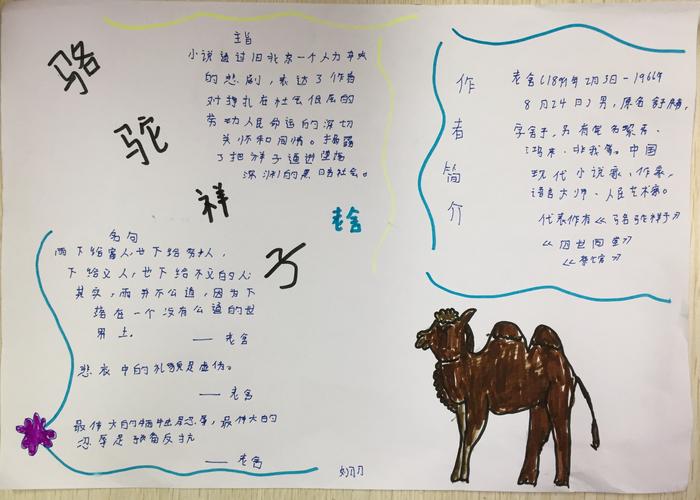 骆
驼
祥
子
老舍
主旨
小说通过旧北京一个人力车夫
的悲剧，表达了作者
对挣扎在社会低层的
劳动人民命运的深切
关怀和同情。揭露
了把祥子逼进堕落
深渊的黑暗社会。
作者简介
老舍（1899年2月3日-1966年
8月24日）男，原名舒
字舍予，另有笔名絜青、
鸿来、非我等。中国
现代小说家、作家，
语言大师、人民艺术家。
代表作有《骆驼祥子》
《四世同堂》
名句
雨下给富人，也下给穷人，
下给义人，也下给不义的人；
其实，雨并不公道，因为下
落在一个没有公道的世
界上。
—— 老舍
悲哀中的礼貌是虚伪。
—— 老舍
最伟大的牺牲是忍辱，最伟大的
忍辱是预备反抗
—— 老舍